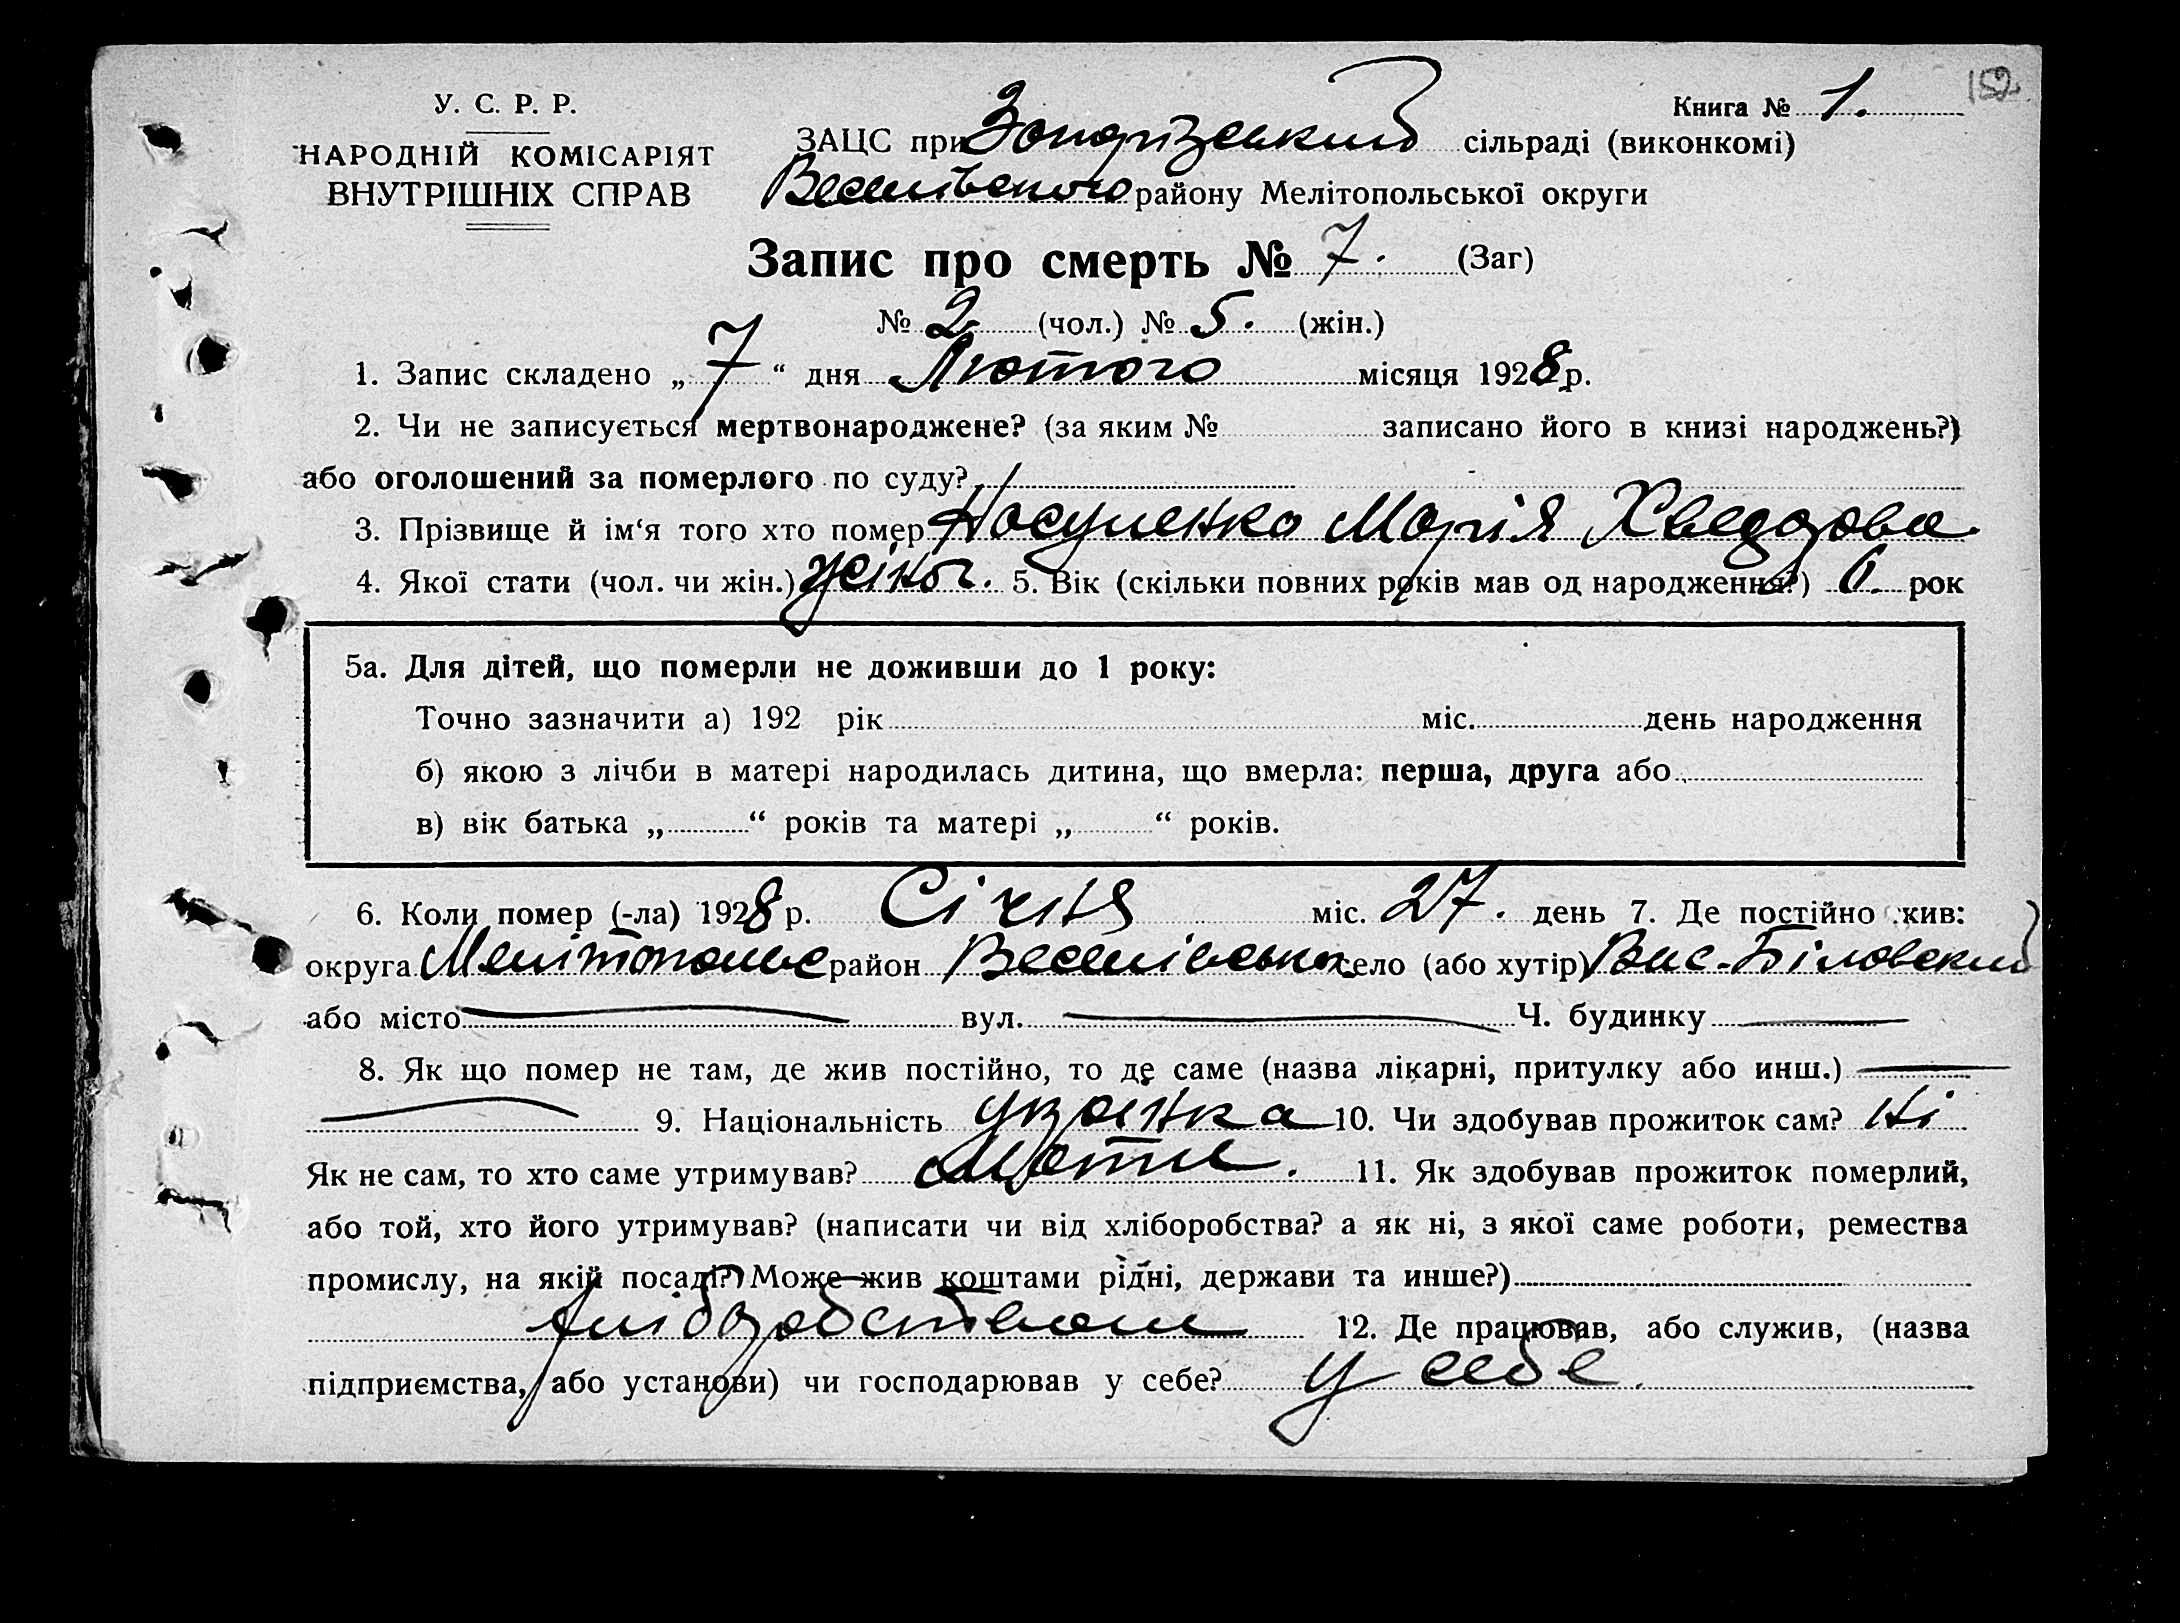 152
У. С. Р. Р.
Книга № 1.
НАРОДНІЙ КОМІСАРІЯТ
ВНУТРІШНІХ СПРАВ
ЗАЦС при сільраді (виконкомі)
Веселівського району Мелітопольської округи
Запис про смерть № 7. (Заг)
№ 2 (чол.) № 5. (жін.)
1. Запис складено „ 7 “ дня Лютого місяця 1928 р.
2. Чи не записується мертвонароджене? (за яким № записано його в книзі народжень?)
або оголошений за померлого по суду?
3. Прізвище й ім‘я того хто помер Носуленко Марія Хведорова
4. Якої стати (чол. чи жін.) жіноч. 5. Вік (скільки повних років мав од народження?) 6. рок
5а. Для дітей, що померли не доживши до 1 року:
Точно зазначити а) 192 рік міс. день народження
б) якою з лічби в матері народилась дитина, що вмерла: перша, друга або
в) вік батька „ “ років та матері „ “ років.
6. Коли помер (-ла) 1928 р. Січня міс. 27. день 7. Де постійно жив:
округа Мелітопольс район Веселівська село (або хутір) Вис.-Біловский
або місто — вул. — Ч. будинку —
8. Як що помер не там, де жив постійно, то де саме (назва лікарні, притулку або инш.) —
— 9. Національність укр-нка 10. Чи здобував прожиток сам? Ні
Як не сам, то хто саме утримував? Мати. 11. Як здобував прожиток померлий,
або той, хто його утримував? (написати чи від хліборобства? а як ні, з якої саме роботи, ремества
промислу, на якій посаді?) Може жив коштами рідні, держави та инше?)
хліборобством 12. Де працював, або служив, (назва
підприємства, або установи) чи господарював у себе? у себе.